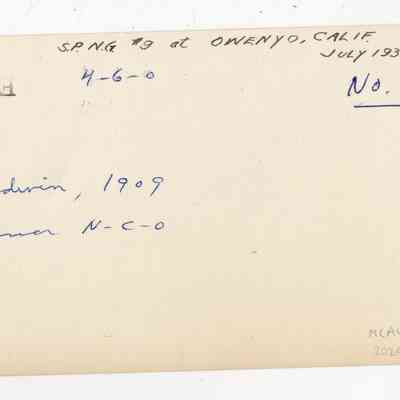 S.P.N.G. #9 at OWENYO, CALIF.
JULY 193
H 4-6-0 No.
dwin, 1909
N-C-O
MCAV
202